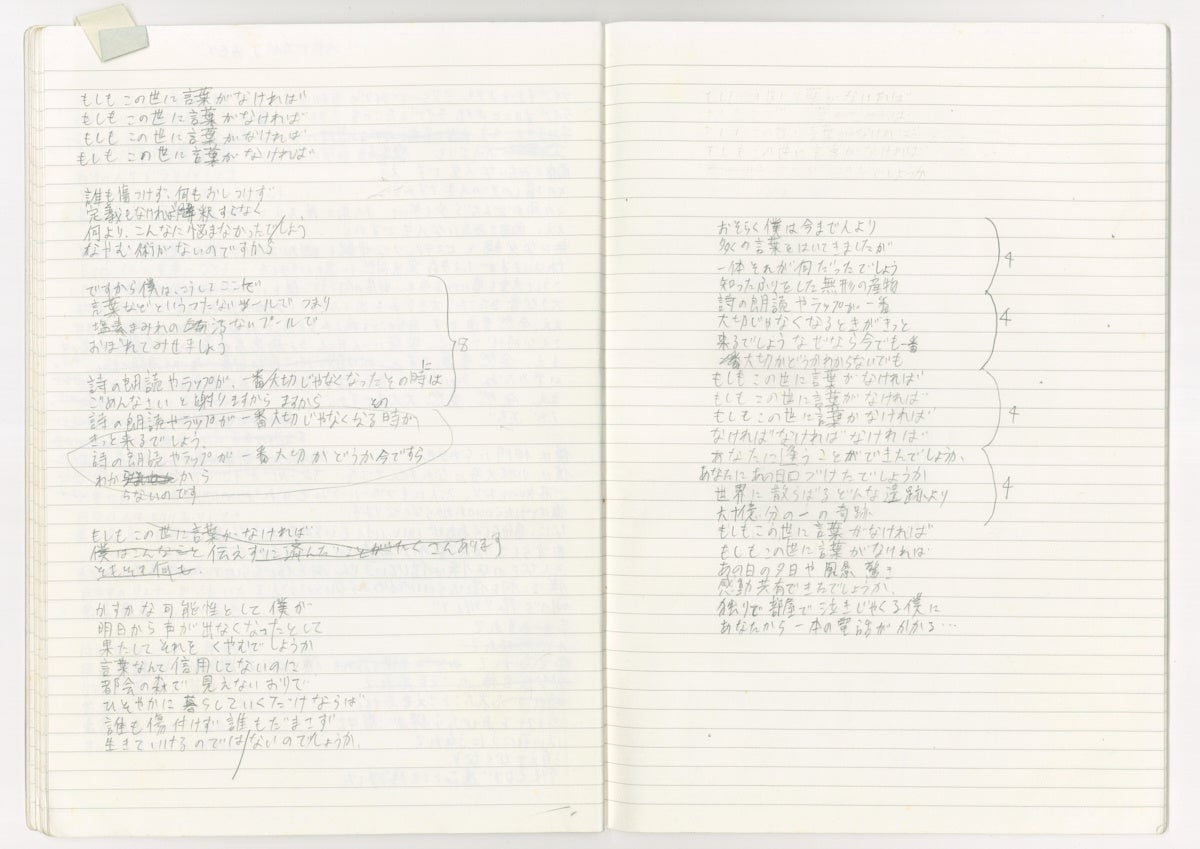 もしもこの世に言葉がなければ
もしもこの世に言葉がなければ
もしもこの世に言葉がなければ
もしもこの世に言葉がなければ
誰も傷つけず、何もおしつけず
定義もなければ解釈すらなく
何より、こんなに悩まなかったでしょう
なやむ術がないのですから
ですから僕は、こうしてここで
言葉などというつたないツールで つまり
塩素まみれの ないプールで
おぼれてみせましょう
詩の朗読やラップが、一番大切じゃなくなったその時には
ごめんなさいと謝りますから ますから その
詩の朗読やラップが一番大切じゃなくなる時が
きっと来るでしょう、
詩の朗読やラップが一番大切かどうか今ですら
わか から
らないのです
もしもこの世に言葉がなければ
僕はこんなこと伝えずに済んだことがたくさんあります
そもそも何も、
かすかな可能性として僕が
明日から声が出なくなったとして
果たしてそれをくやむでしょうか
言葉なんて信用してないのに
都会の森で 見えないおりで
ひそやかに暮らしていくだけならば
誰も傷付けず誰もだまさず
生きていけるのではないのでしょうか、
8
おそらく僕は今まで人より
多くの言葉をはいてきましたが
一体それが何だったでしょう
知ったふりをした無形の産物
詩の朗読やラップが一番
大切じゃなくなるときがきっと
来るでしょうなぜなら今でも一番
一番大切かどうかわからないでも
もしもこの世に言葉がなければ
もしもこの世に言葉がなければ
もしもこの世に言葉がなければ
なければなければなければ
あなたに逢うことができたでしょうか、
あなたにあの日口づけたでしょうか
世界に散らばるどんな遺跡より
六十億分の一の奇跡
もしもこの世に言葉がなければ
もしもこの世に言葉がなければ
あの日の夕日や風景 驚き
感動共有できたでしょうか、
独りで部屋で泣きじゃくる僕に
あなたから一本の電話がかかる…
4
4
4
4